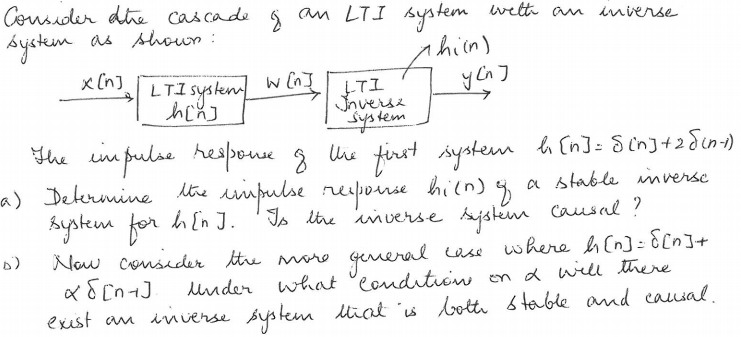 Consider dthe cascade of an LTI system with an inverse
system as shown :
hi(n)
x[n] LTI system h[n] W[n] LTI Inverse System y[n]
The impulse response of the first system h[n]= δ[n]+2δ(n-1)
a) Determine the impulse response hi(n) of a stable inverse
system for h[n]. Is the inverse system causal ?
b) Now consider the more general case where h[n]=δ[n]+
αδ[n-1]. Under what conditions on α will there
exist an inverse system that is both stable and causal.